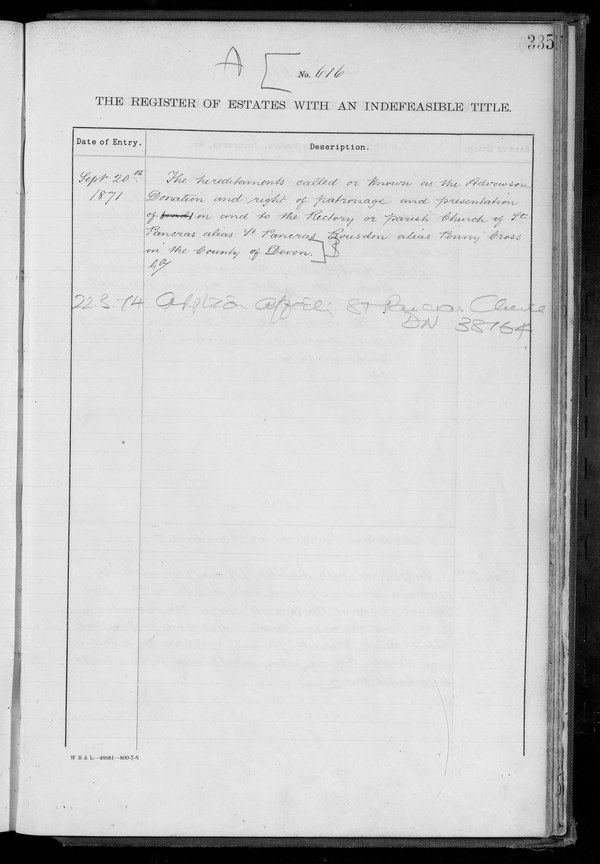 335
A [
No. 616
THE REGISTER OF ESTATES WITH AN INDEFEASIBLE TITLE.
Date of Entry.
Description.
Sept 20th 1871
The hereditaments called or known as the Advowson
Donation and right of patronage and presentation
of in and to the Rectory or parish Church of St
Pancras alias St Pancras Rousdon alias Penny Cross
in the County of Devon. ]
22.3.74 St Pancras
DN 38164
W B & L—49861—800-7-6